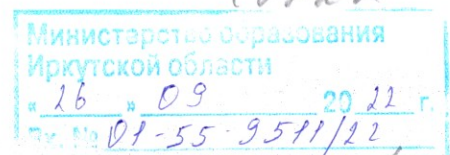 Министерство образования
Иркутской области
« 26 » 09 2022 г.
Вх. № 01-55-9511/22